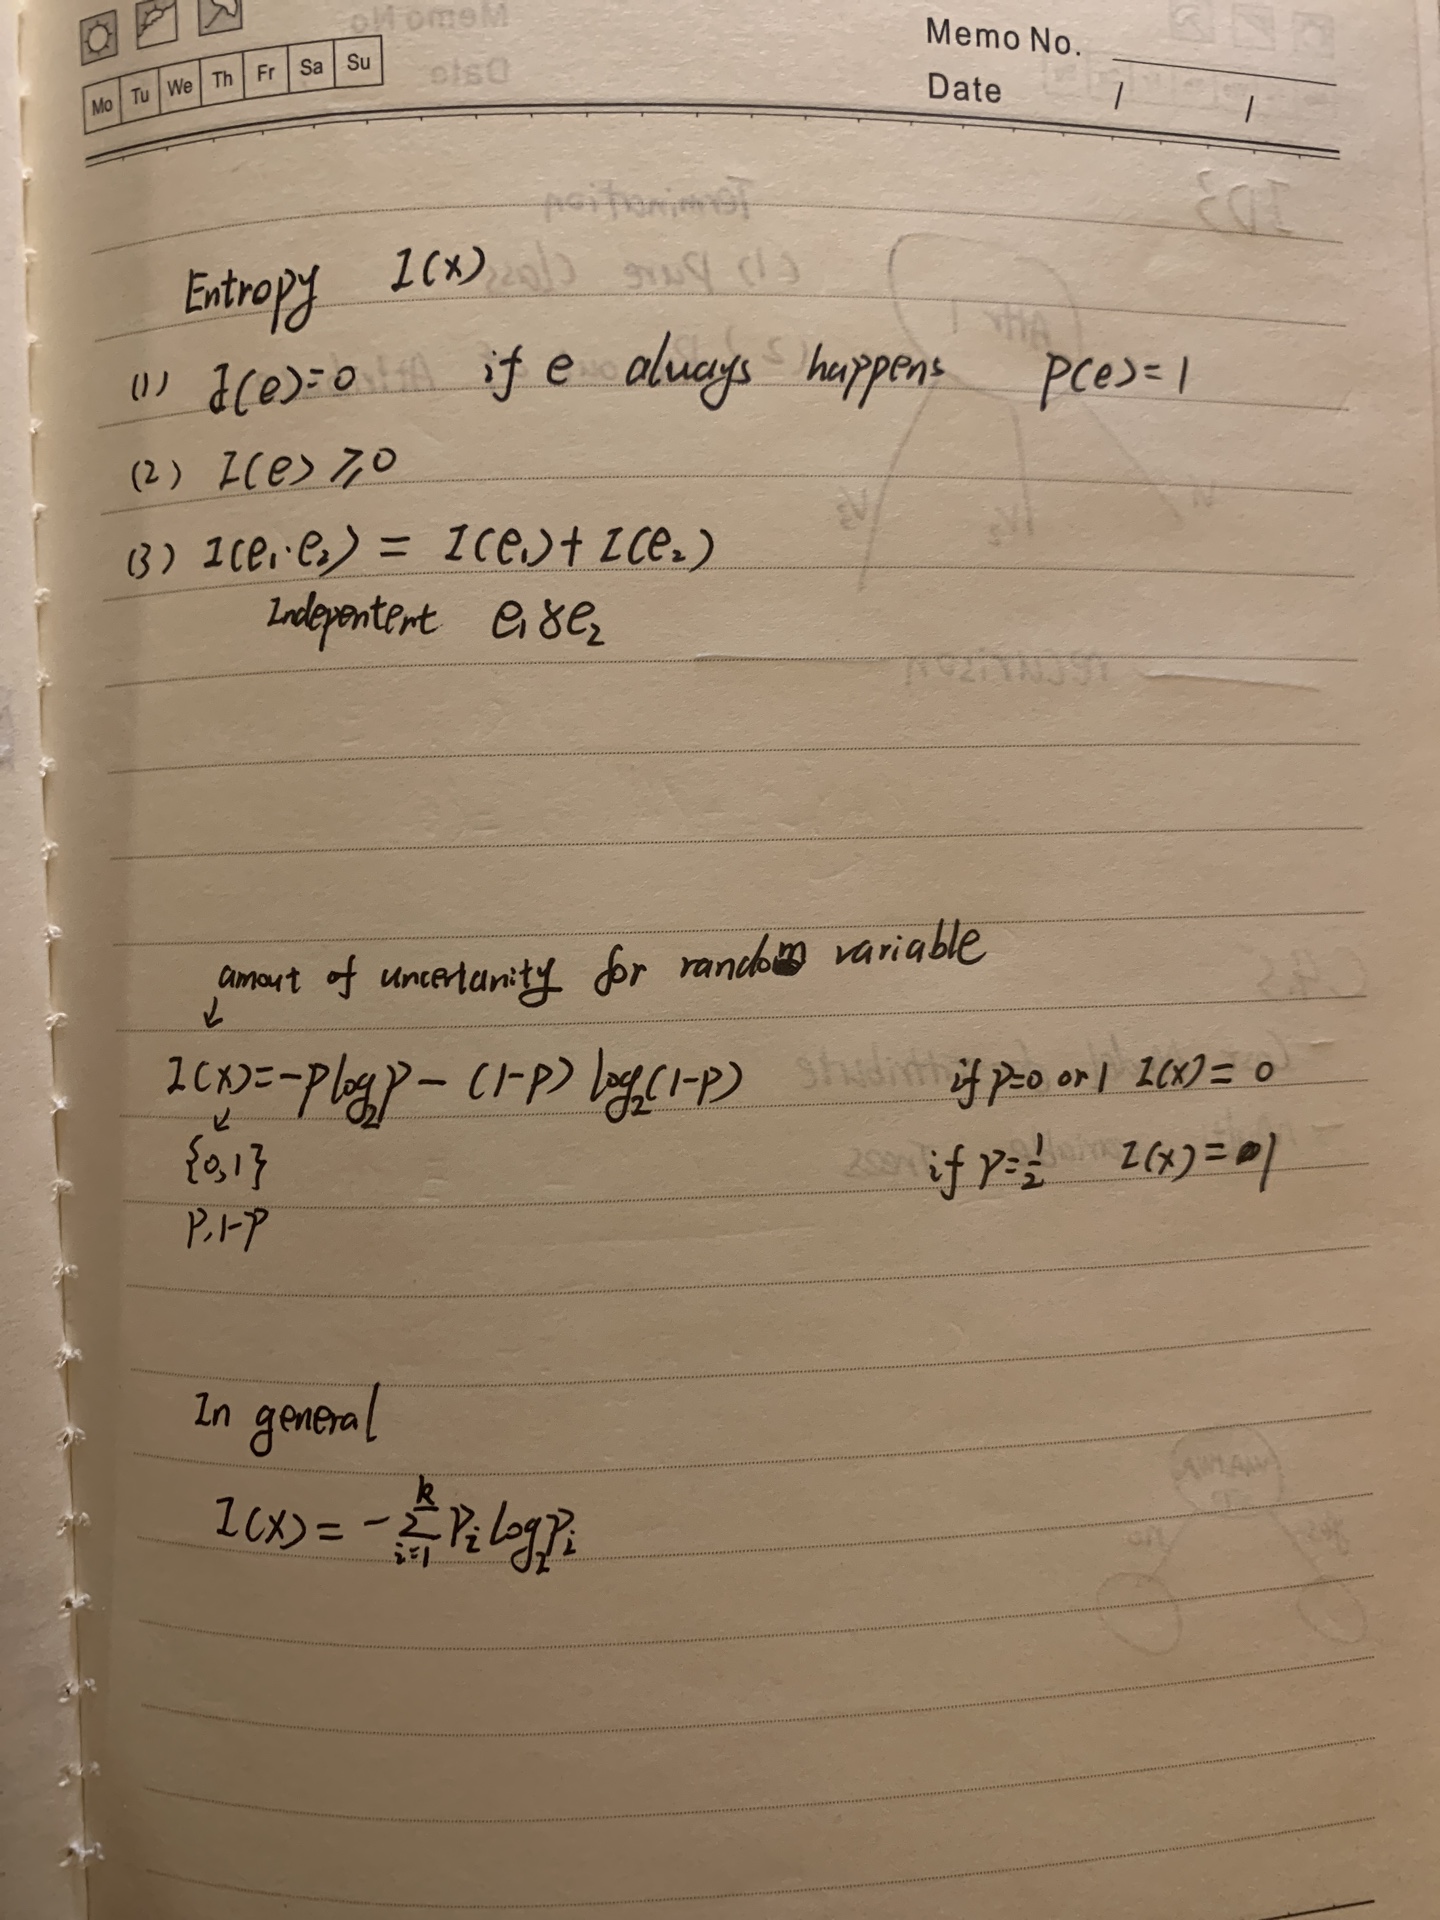 Memo No.
Mo Tu We Th Fr Sa Su
Date / /
Entropy I(x)
(1) I(e)=0 if e always happens P(e)=1
(2) I(e)⩾0
(3) I(e₁·e₂) = I(e₁)+I(e₂)
Indepentent e₁ & e₂
amout of uncertanity for random variable
↓
I(x)=-p log₂p - (1-p) log₂(1-p) if p=0 or 1 I(x)=0
↓
{0,1} if p=½ I(x)=1
P,1-P
In general
I(x) = -∑ᵢ₌₁ᵏ Pᵢ log₂Pᵢ